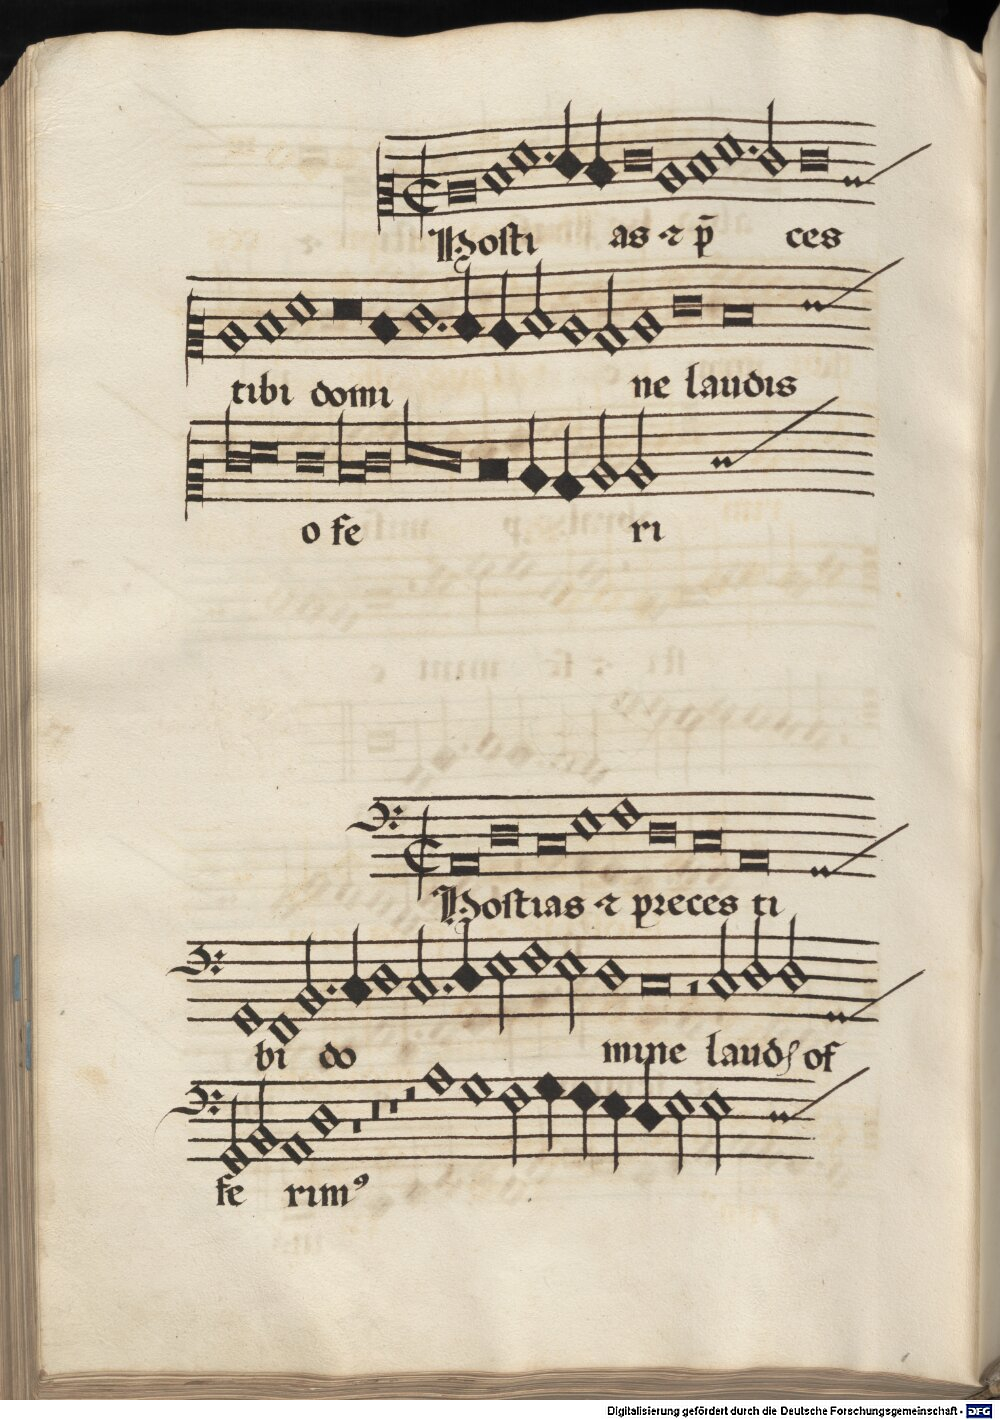 Hosti as ⁊ p̄ ces
tibi domi ne laudis
o fe ri
Hostias ⁊ preces ti
bi do mine laudꝭ of
fe rimꝰ
Digitalisierung gefördert durch die Deutsche Forschungsgemeinschaft - DFG